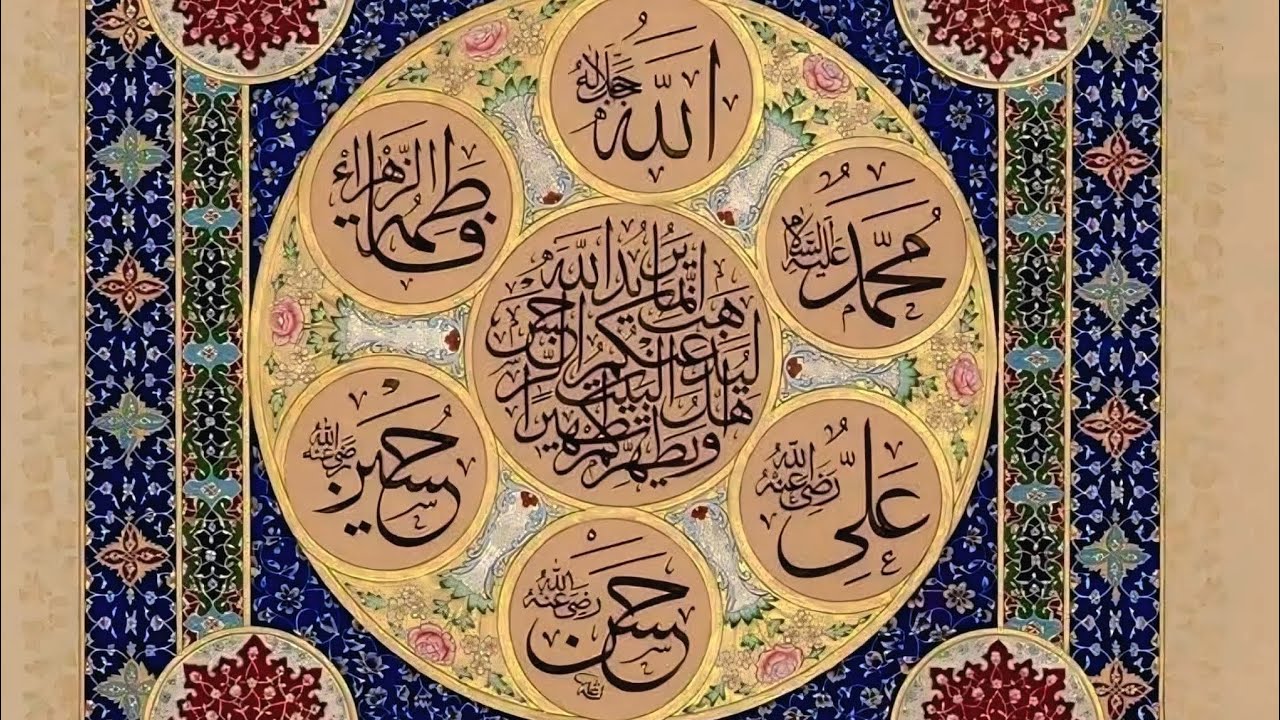 الله جل جلاله
محمد عليه السلام
علي رضي الله عنه
حسن رضي الله عنه
حسين رضي الله عنه
فاطمة الزهراء
إنما يريد الله
ليذهب عنكم الرجس
أهل البيت
ويطهركم تطهيرا